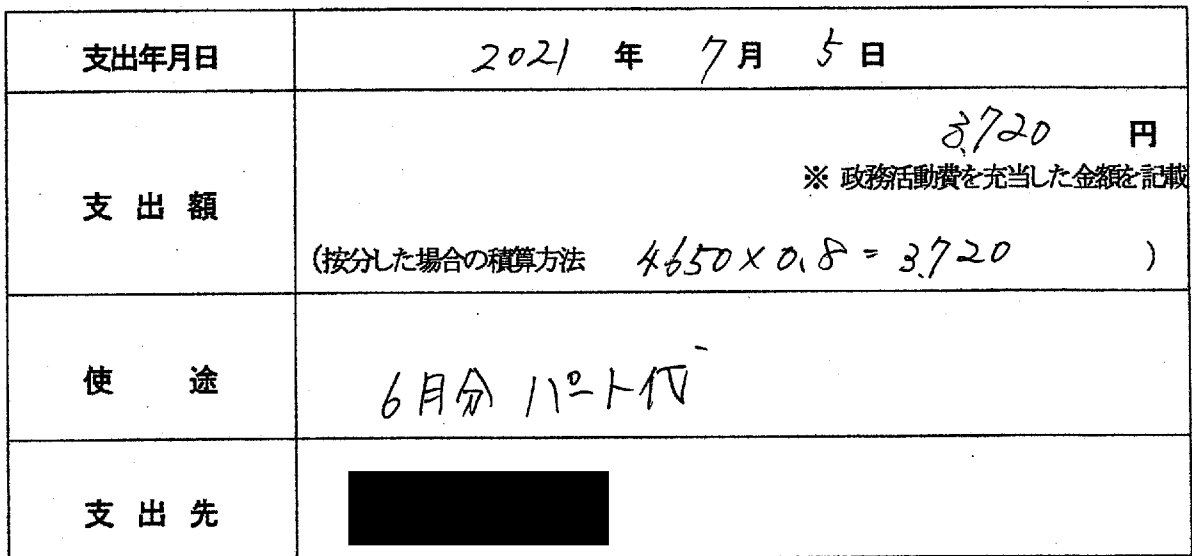 支出年月日 2021 年 7月 5日
3,720 円
※ 政務活動費を充当した金額を記載
支出額
(按分した場合の積算方法 4650×0.8=3,720 )
使途 6月分 パート代
支出先